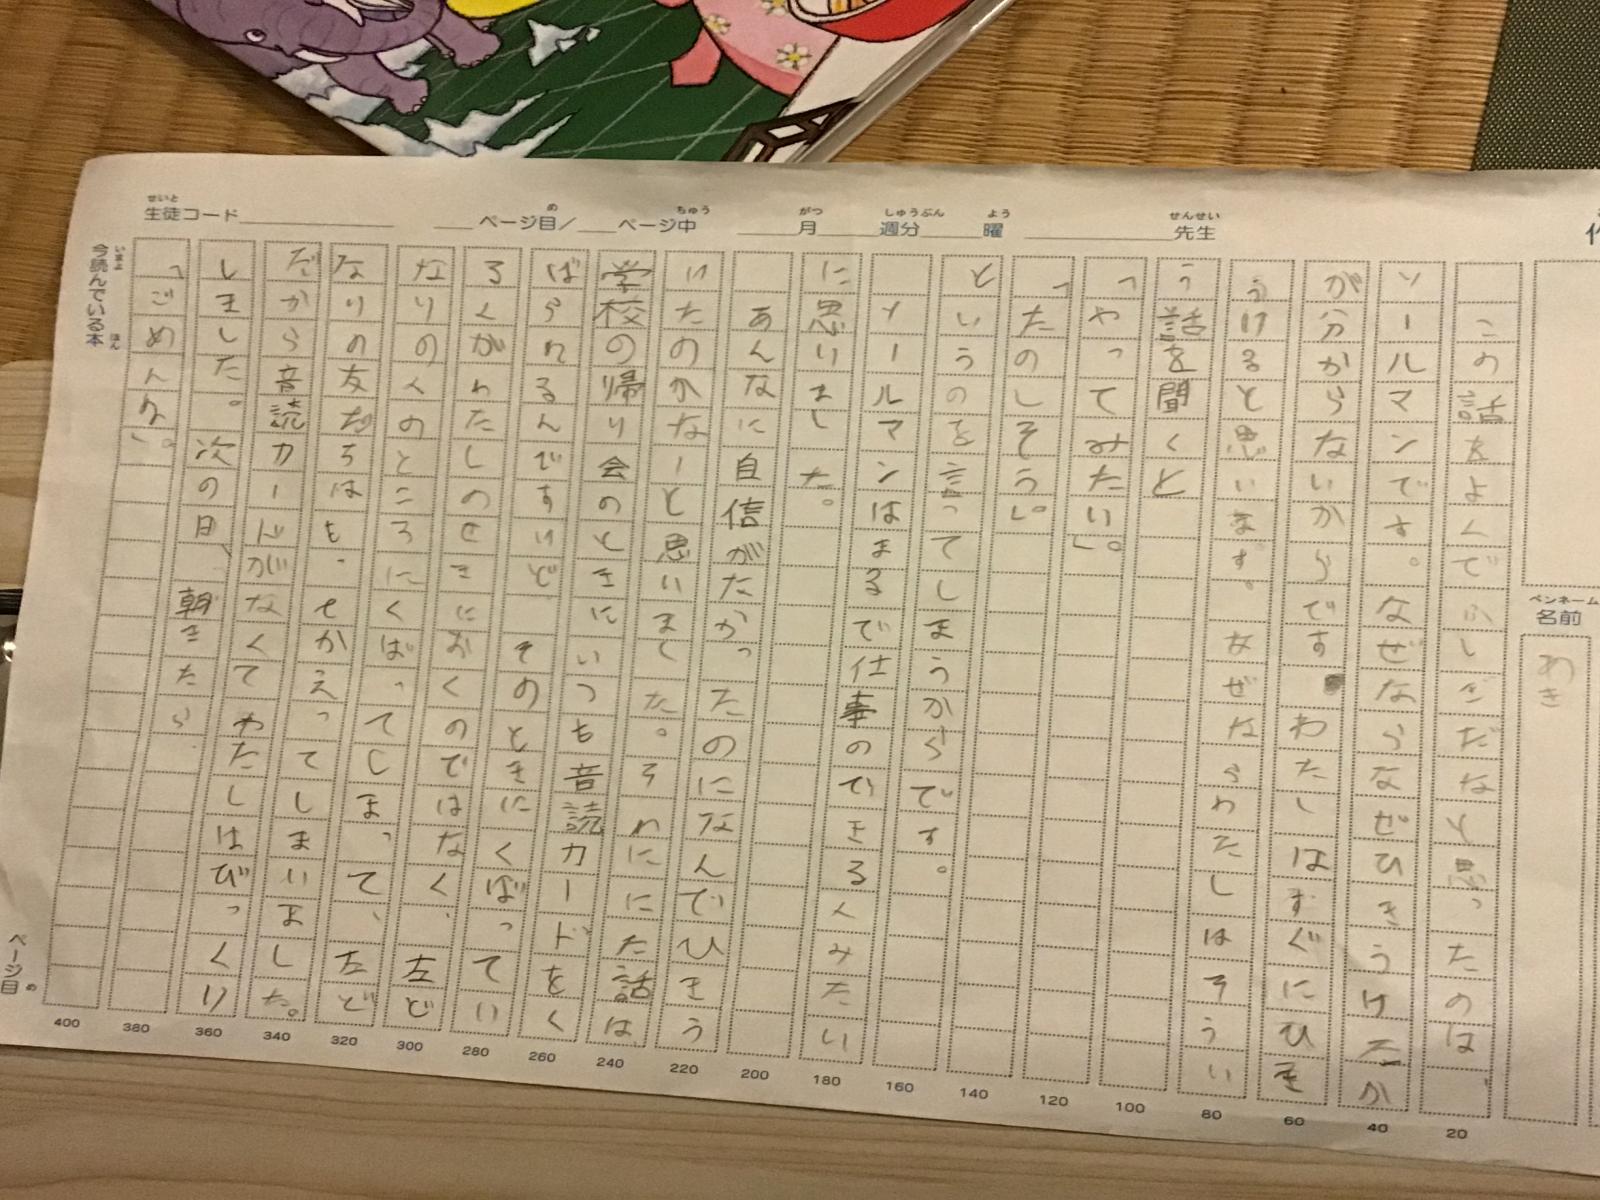 生徒コード
せいと
ページ目/
め
ページ中
ちゅう
月
がつ
週分
しゅうぶん
曜
よう
先生
せんせい
ペンネーム
名前
わき
この話をよんでふしぎだなと思ったのは
ソールマンです。なぜならなぜひきうけたか
が分からないからです わたしはすぐにひき
うけると思います。なぜならわたしはそうい
う話を聞くと
「やってみたい」。
「たのしそう」。
というのを言ってしまうからです。
ソールマンはまるで仕事のできる人みたい
に思いました。
あんなに自信がたかったのになんでひきう
いたのかなーと思いまてた。それににた話は
学校の帰り会のときにいつも音読カードをく
ばられるんですけど そのときにくばってい
る人がわたしのせきにおくのではなく、左ど
なりの人のところにくばってしまって、左ど
なりの友だちはも、せかえってしまいました。
だから音読カードがなくてわたしはびっくり
しました。次の日、朝きたら
「ごめんな」。
20
40
60
80
100
120
140
160
180
200
220
240
260
280
300
320
340
360
380
400
今読んでいる本
いまよ
ほん
ページ目
め